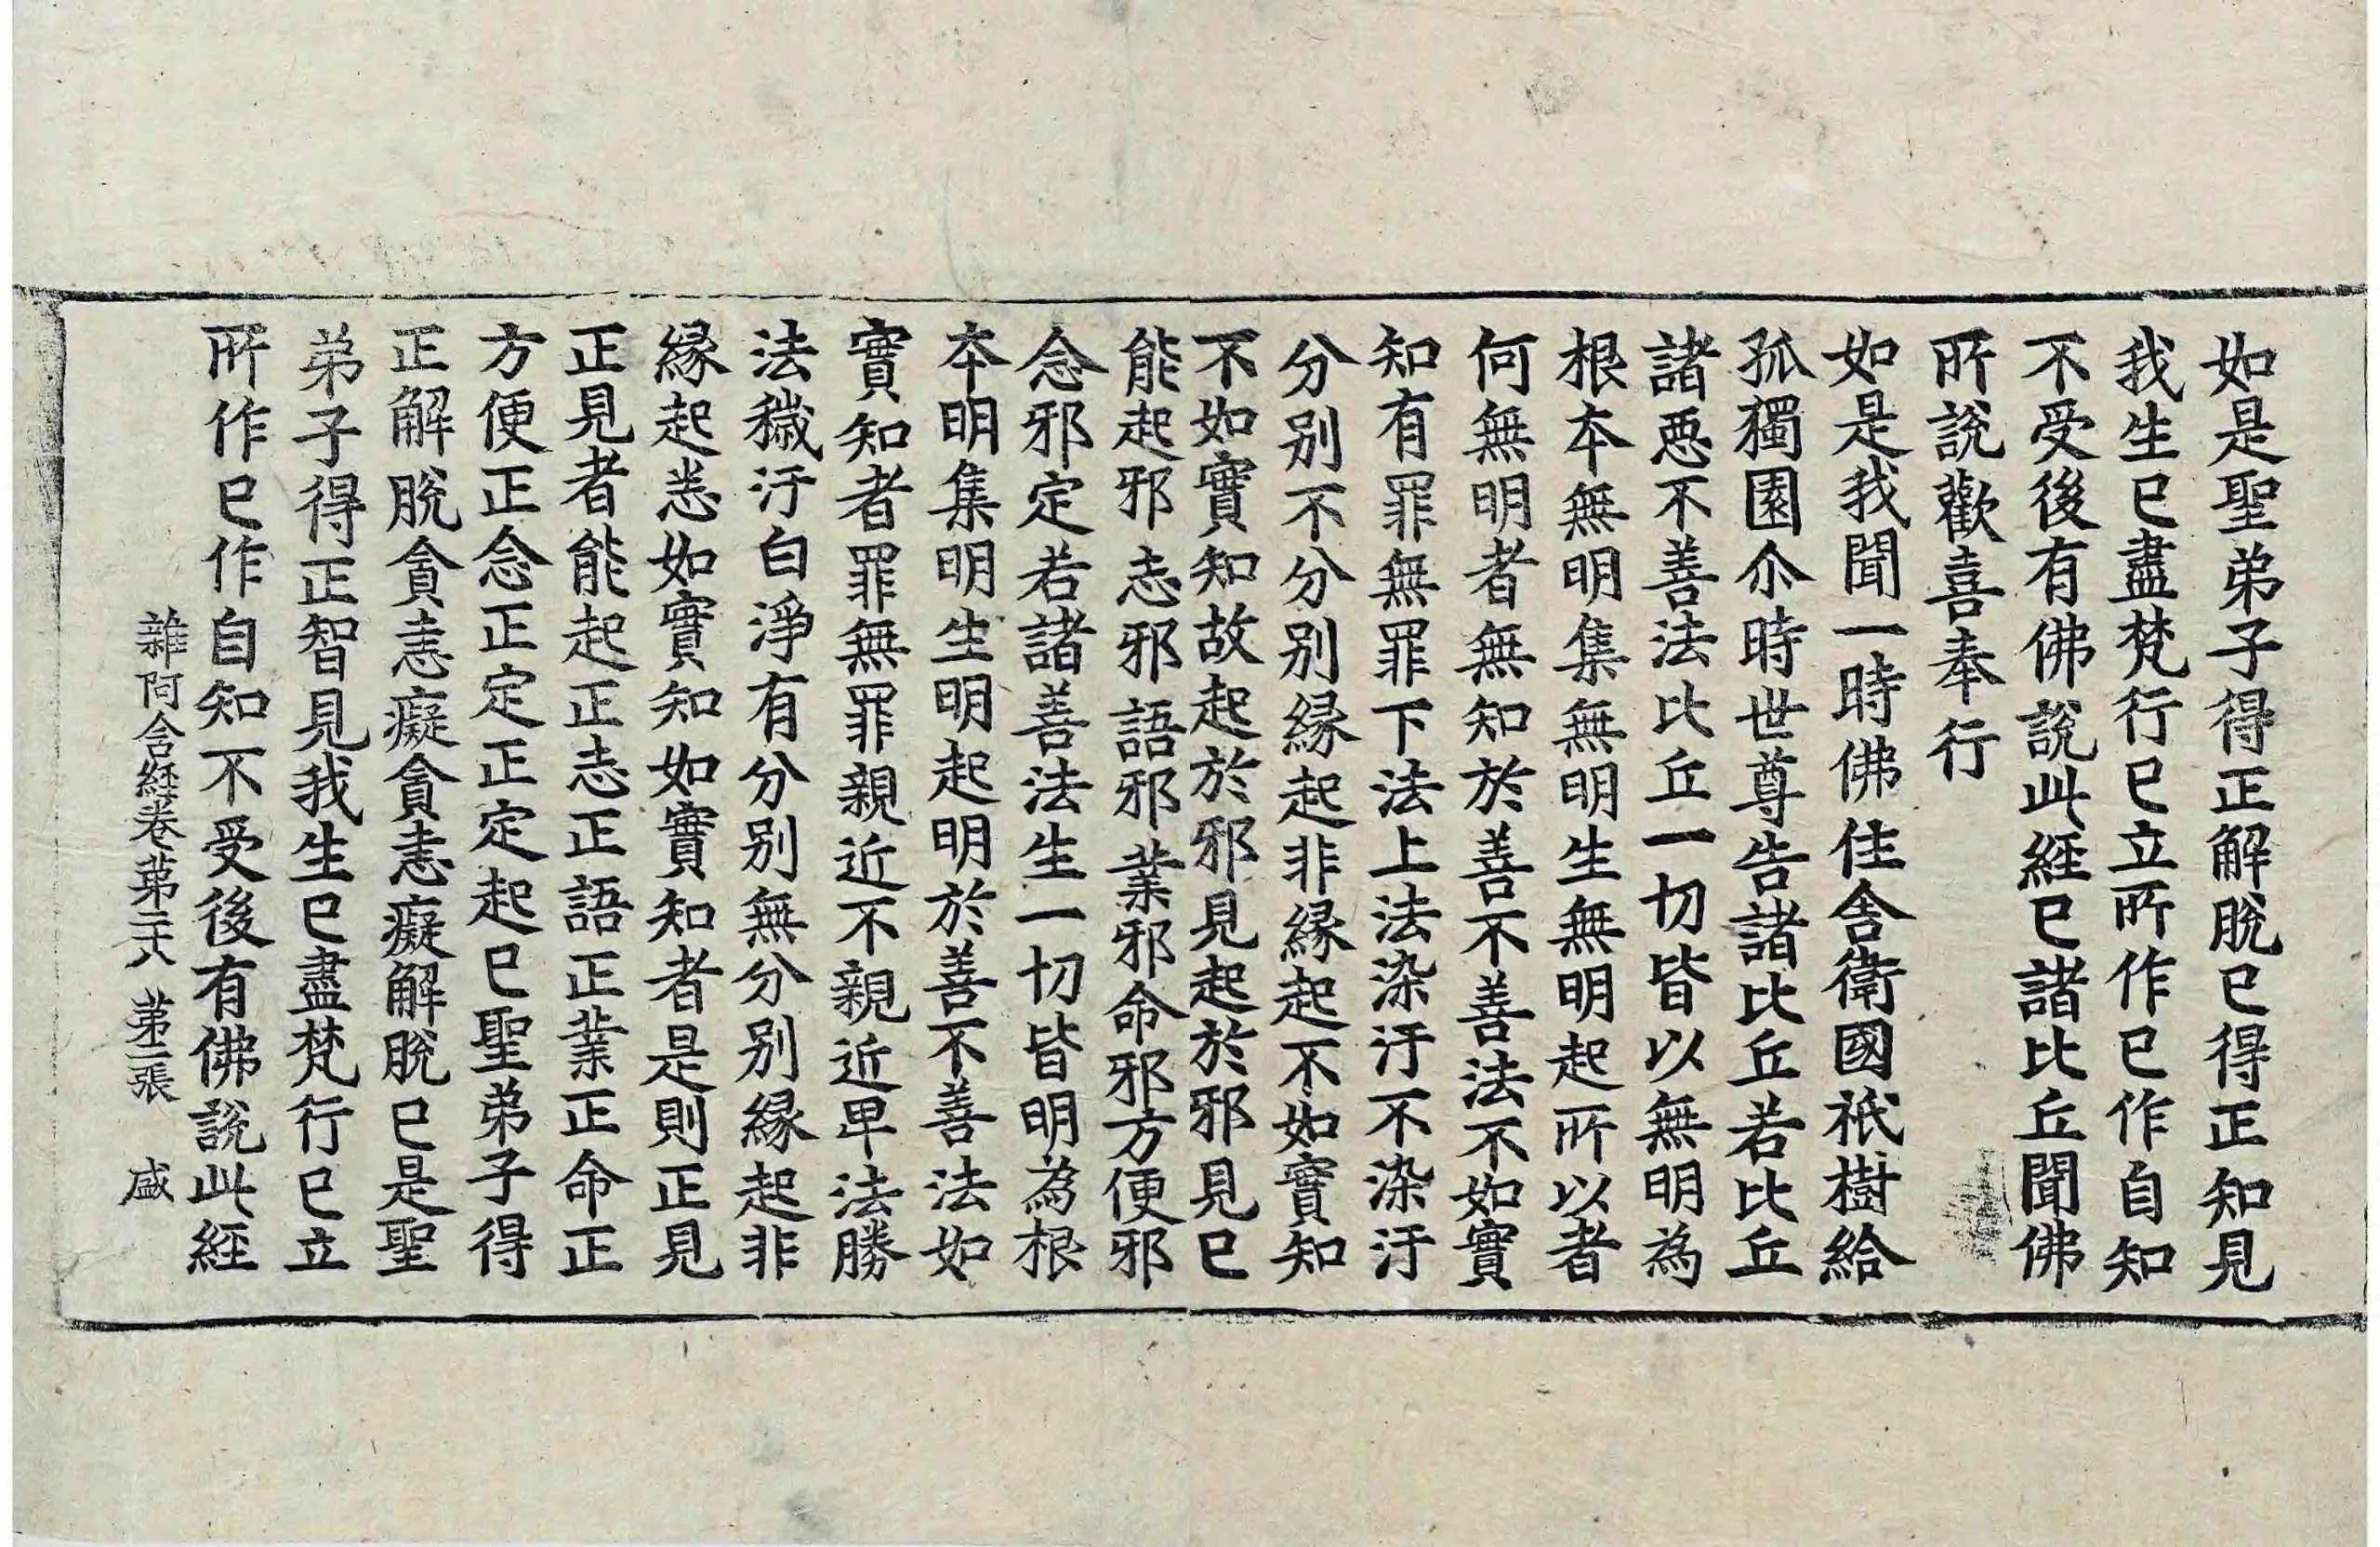 如是聖弟子得正解脫已得正知見
我生已盡梵行已立所作已作自知
不受後有佛說此經已諸比丘聞佛
所說歡喜奉行
如是我聞一時佛住舍衛國祇樹給
孤獨園尒時世尊告諸比丘若比丘
諸惡不善法比丘一切皆以無明為
根本無明集無明生無明起所以者
何無明者無知於善不善法不如實
知有罪無罪下法上法染汙不染汙
分別不分別緣起非緣起不如實知
不如實知故起於邪見起於邪見已
能起邪志邪語邪業邪命邪方便邪
念邪定若諸善法生一切皆明為根
本明集明生明起明於善不善法如
實知者罪無罪親近不親近卑法勝
法穢汙白淨有分別無分別緣起非
緣起悉如實知如實知者是則正見
正見者能起正志正語正業正命正
方便正念正定正定起已聖弟子得
正解脫貪恚癡貪恚癡解脫已是聖
弟子得正智見我生已盡梵行已立
所作已作自知不受後有佛說此經
雜阿含経卷苐二十八 苐二張 盛